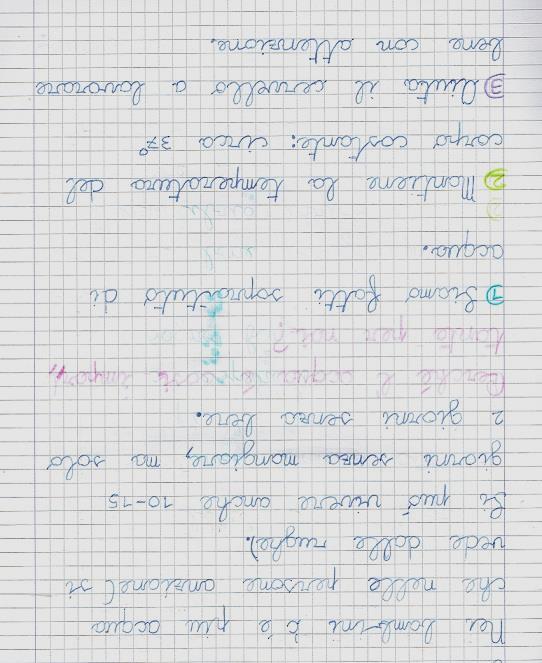 Nei bambini c'è più acqua
che nelle persone anziane (si
vede dalle rughe).
Si può vivere anche 10-15
giorni senza mangiare, ma solo
2 giorni senza bere.
Perché l'acqua è così impor-
tante per noi?
① Siamo fatti sopratutto di
acqua.
② Mantiene la temperatura del
corpo costante: circa 37°
③ Aiuta il cervello a lavorare
bene con attenzione.